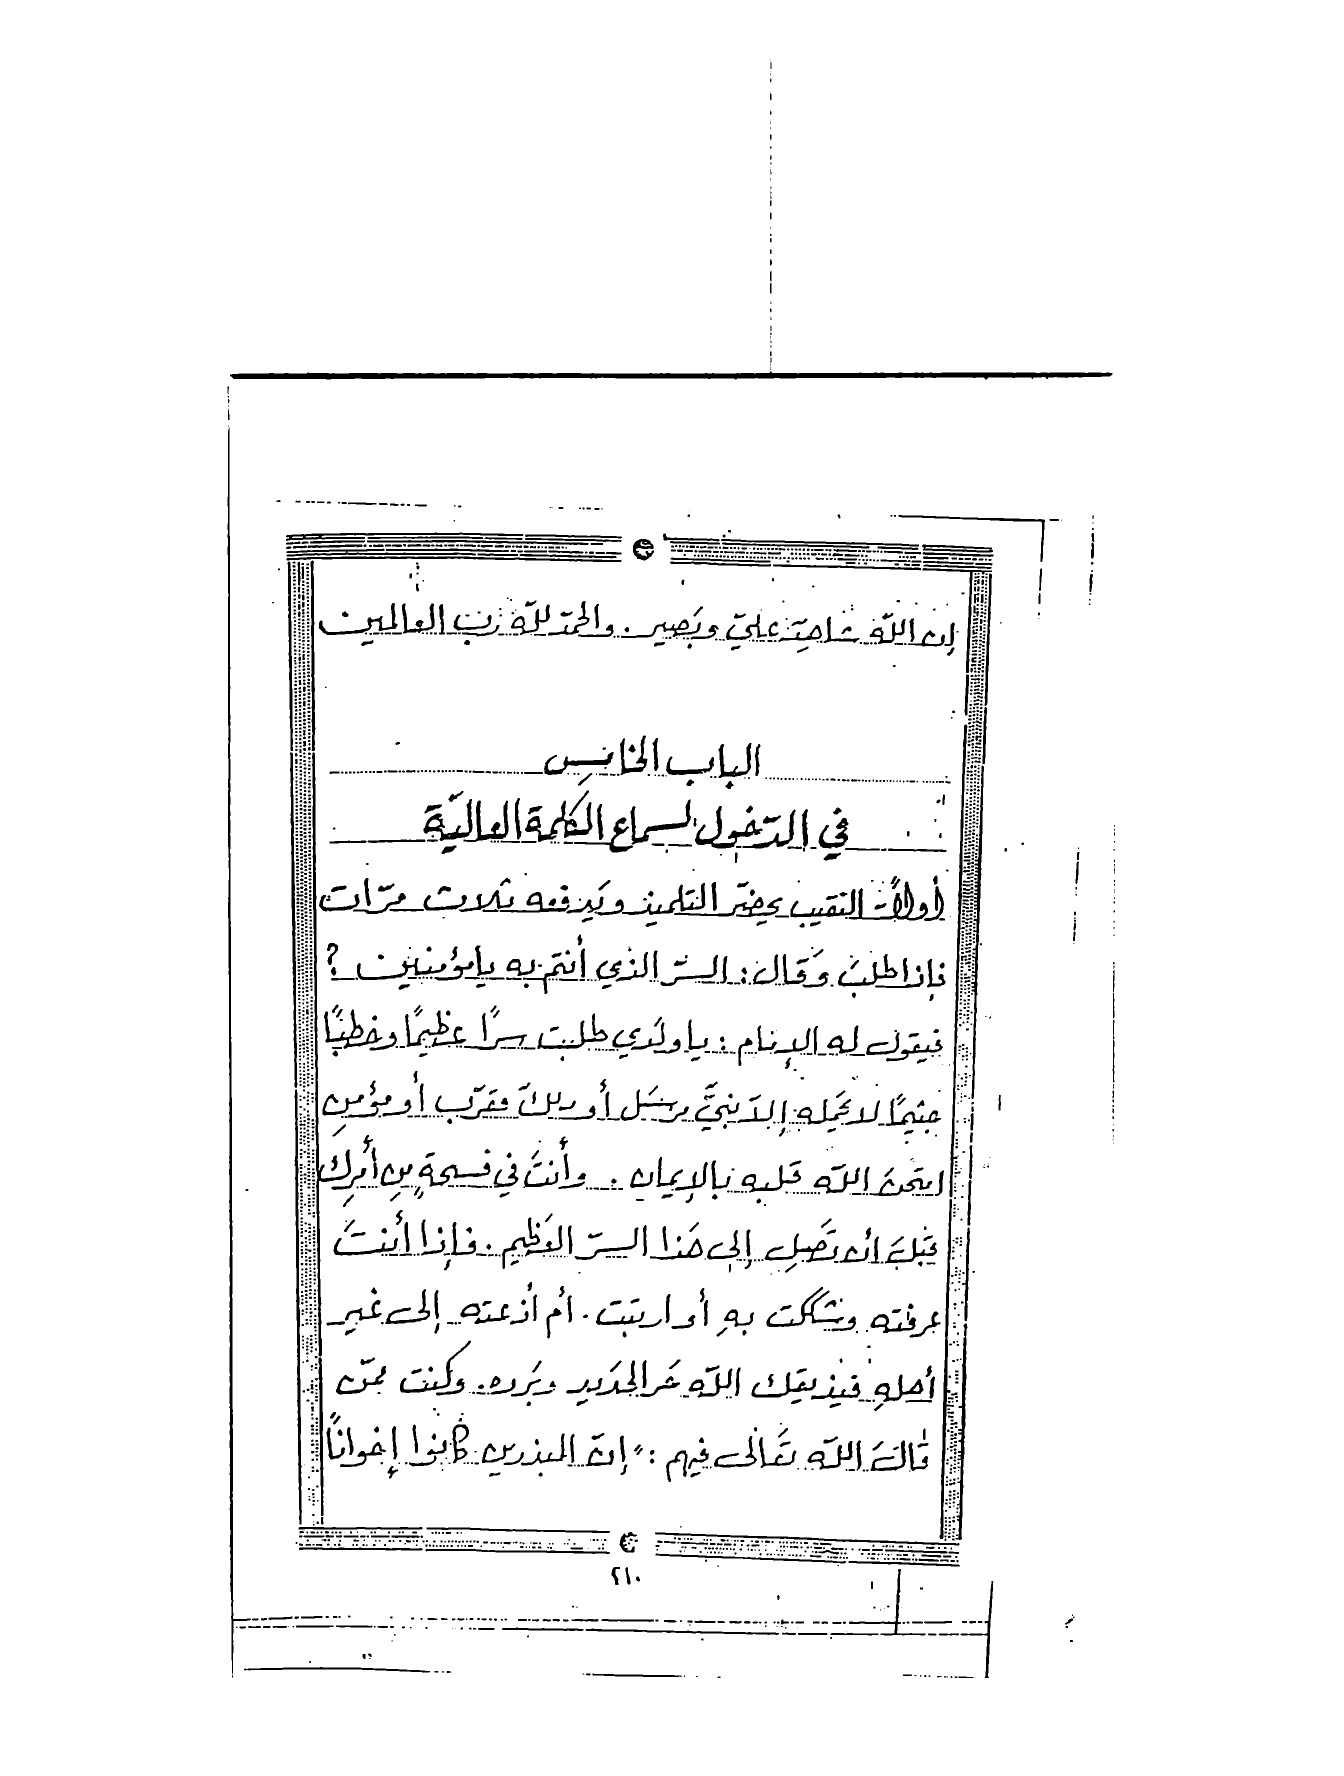 إن الله شاهد عليّ وبَصير. والحمدُ للّه رَبّ العالمين
الباب الخامِس
في الدّخول لسماع الكلمة العاليّة
أولاً: النقيب يحضّر التلميذ ويَدفعه ثلاث مرّات
فإذا طلبَ وَقال: السرّ الذي أنتم به يامؤمنين ؟
فيقول له الإمام : يا ولَدي طلبت سرًا عظيمًا وخطبًا
جسيمًا لا يحمله إلاّ نبيٌّ مرسَل أو ملكٌ مقرّب أو مؤمنِ
امتحنَ اللّه قلبه بالإيمان . وأنتَ في فسحةٍ مِن أمرِك
قبلَ أن تَصِل إلى هَذا السرّ العَظيم. فإذا أنتَ
عرفته وشككت بهِ أو ارتبت. أم أذعته إلى غير
أهلهِ فيذيقك اللّه حَر الحَديد وبَرده. وكنت ممّن
قالَ اللّه تعَالى فيهم : "إنّ المبذرين كانوا إخوانًا
٢١٠